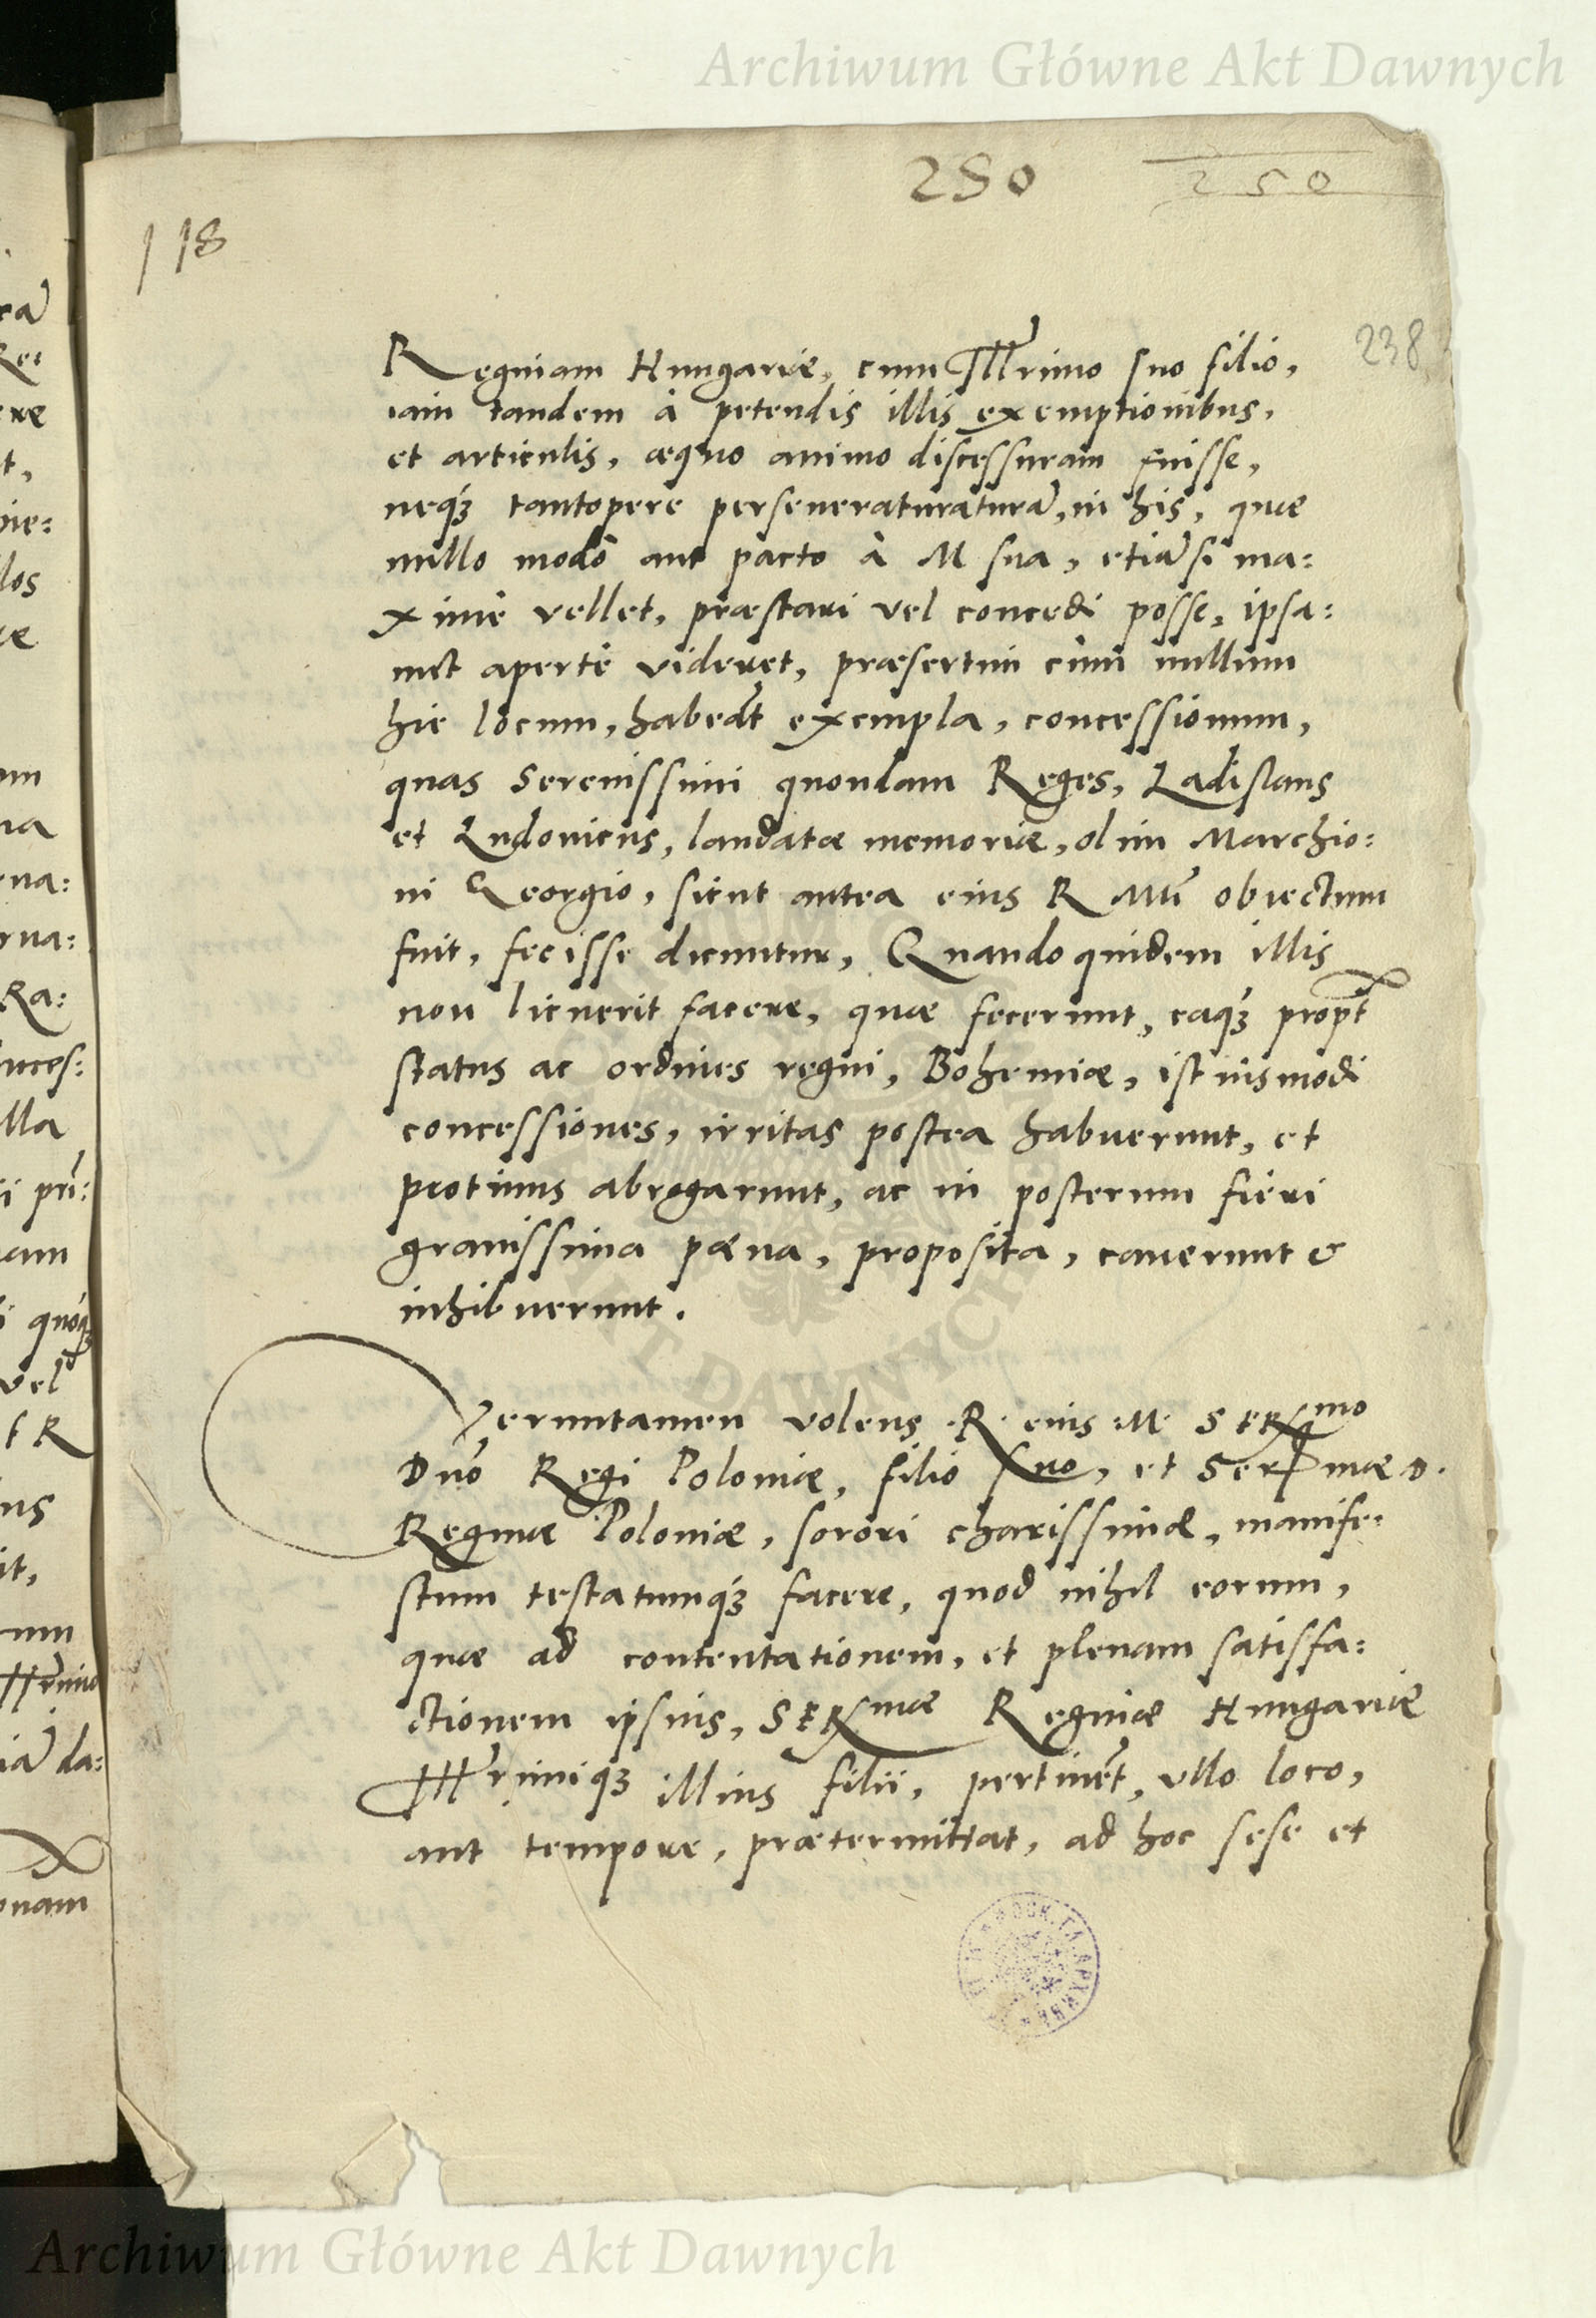 Archiwum Główne Akt Dawnych
250
250
118
238
Reginam Hungariæ, cum Illrimo suo filio,
iam tandem à petendis illis exemptionibus,
et articulis, æquo animo discessuram fuisse,
neq́ꝫ tantopere perseueraturaturā, in his, quæ
nullo modo aut pacto à M sua, etiāsi ma:
xime vellet, præstari vel concedi posse, ipsa:
met apertè videret, præsertim cùm nullum
hic locum, habeāt exempla, concessionum,
quas Serenissimi quondam Reges, Ladislaus
et Ludouicus, laudatæ memoriæ, olim Marchio:
ni Georgio, sicut antea eius R Mti obiectum
fuit, fecisse dicuntur, Quandoquidem illis
non licuerit facere, quæ fecerunt, eaq́ꝫ propt
status ac ordines regni, Bohemiæ, istiusmodi
concessiones, irritas postea habuerunt, et
protinus abrogarunt, ac in posterum fieri
grauissima pœna, proposita, cauerunt &
inhibuerunt.
Veruntamen volens .R. eius .M. Sermo
Dnō Regi Poloniæ, filio suo, et Sermæ D.
Reginæ Poloniæ, sorori charissimæ, manife:
stum testatumq́ꝫ facere, quod nihil eorum,
quæ ad contentationem, et plenam satisfa:
ctionem ipsius, Sermæ Reginæ Hungariæ
Illrimiqꝫ illius filii, pertinēt, vllo loco,
aut tempore, prætermittat, ad hoc sese et
Archiwum Główne Akt Dawnych